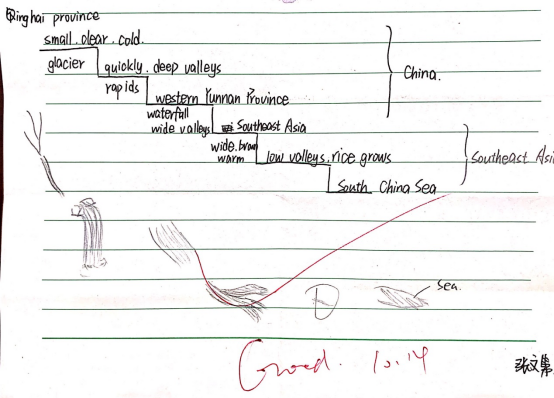 Qinghai province
small. clear. cold.
glacier quickly. deep valleys
rapids western Yunnan Province
China.
waterfall
wide valleys Southeast Asia
wide. brown
warm low valleys. rice grows
Southeast Asi
South China Sea
sea.
Good. 10.14